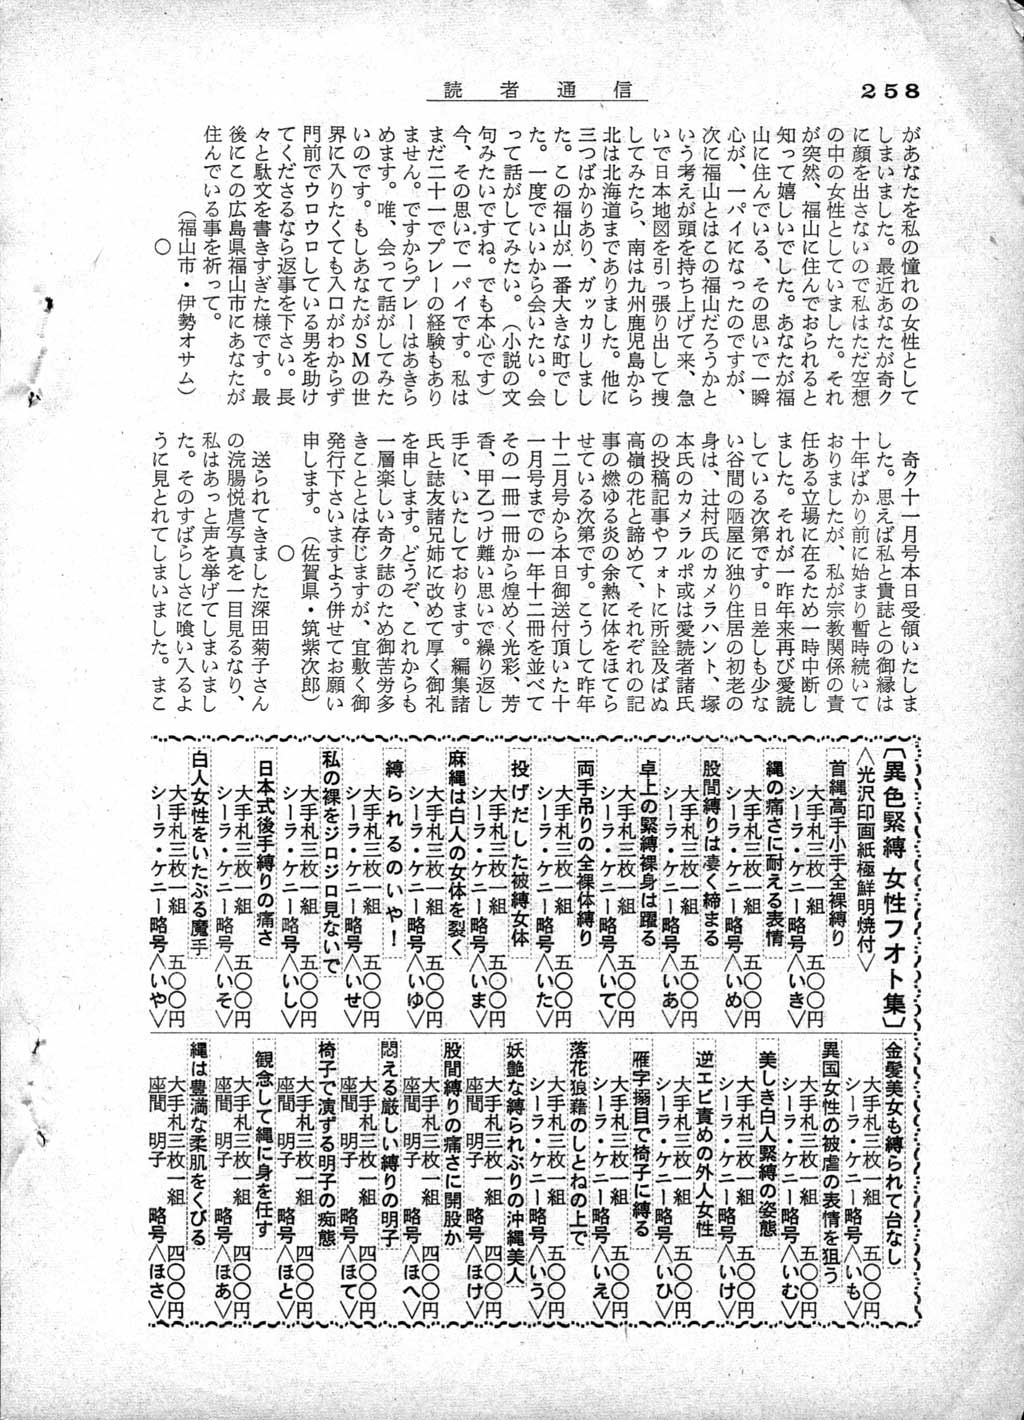 258
読者通信
があなたを私の憧れの女性として
しまいました。最近あなたが奇ク
に顔を出さないので私はただ空想
の中の女性としていました。それ
が突然、福山に住んでおられると
知って嬉しいでした。あなたが福
山に住んでいる、その思いで一瞬
心が、一パイになったのですが、
次に福山とはこの福山だろうかと
いう考えが頭を持ち上げて来、急
いで日本地図を引っ張り出して捜
してみたら、南は九州鹿児島から
北は北海道までありました。他に
三つばかりあり、ガッカリしまし
た。この福山が一番大きな町でし
た。一度でいいから会いたい。会
って話がしてみたい。（小説の文
句みたいですね。でも本心です）
今、その思いで一パイです。私は
まだ二十一でプレーの経験もあり
ません。ですからプレーはあきら
めます。唯、会って話がしてみた
いのです。もしあなたがＳＭの世
界に入りたくても入口がわからず
門前でウロウロしている男を助け
てくださるなら返事を下さい。長
々と駄文を書きすぎた様です。最
後にこの広島県福山市にあなたが
住んでいる事を祈って。
（福山市・伊勢オサム）
○
奇ク十一月号本日受領いたしま
した。思えば私と貴誌との御縁は
十年ばかり前に始まり暫時続いて
おりましたが、私が宗教関係の責
任ある立場に在るため一時中断し
ました。それが一昨年来再び愛読
している次第です。日差しも少な
い谷間の陋屋に独り住居の初老の
身は、辻村氏のカメラハント、塚
本氏のカメラルポ或は愛読者諸氏
の投稿記事やフォトに所詮及ばぬ
高嶺の花と諦めて、それぞれの記
事の燃ゆる炎の余熱に体をほてら
せている次第です。こうして昨年
十二月号から本日御送付頂いた十
一月号までの一年十二冊を並べて
その一冊一冊から煌めく光彩、芳
香、甲乙つけ難い思いで繰り返し
手に、いたしております。編集諸
氏と誌友諸兄姉に改めて厚く御礼
を申します。どうぞ、これからも
一層楽しい奇ク誌のため御苦労多
きこととは存じますが、宜敷く御
発行下さいますよう併せてお願い
申します。（佐賀県・筑紫次郎）
○
送られてきました深田菊子さん
の浣腸悦虐写真を一目見るなり、
私はあっと声を挙げてしまいまし
た。そのすばらしさに喰い入るよ
うに見とれてしまいました。まこ
〔異色緊縛女性フオト集〕
＜光沢印画紙極鮮明焼付＞
首縄高手小手全裸縛り
大手札三枚一組 五〇〇円
シーラ・ケニー 略号＜いき＞
縄の痛さに耐える表情
大手札三枚一組 五〇〇円
シーラ・ケニー 略号＜いめ＞
股間縛りは凄く締まる
大手札三枚一組 五〇〇円
シーラ・ケニー 略号＜いあ＞
卓上の緊縛裸身は躍る
大手札三枚一組 五〇〇円
シーラ・ケニー 略号＜いて＞
両手吊りの全裸体縛り
大手札三枚一組 五〇〇円
シーラ・ケニー 略号＜いた＞
投げだした被縛女体
大手札三枚一組 五〇〇円
シーラ・ケニー 略号＜いま＞
麻縄は白人の女体を裂く
大手札三枚一組 五〇〇円
シーラ・ケニー 略号＜いゆ＞
縛られるのいや！
大手札三枚一組 五〇〇円
シーラ・ケニー 略号＜いせ＞
私の裸をジロジロ見ないで
大手札三枚一組 五〇〇円
シーラ・ケニー 略号＜いし＞
日本式後手縛りの痛さ
大手札三枚一組 五〇〇円
シーラ・ケニー 略号＜いそ＞
白人女性をいたぶる魔手
大手札三枚一組 五〇〇円
シーラ・ケニー 略号＜いや＞
金髪美女も縛られて台なし
大手札三枚一組 五〇〇円
シーラ・ケニー 略号＜いも＞
異国女性の被虐の表情を狙う
大手札三枚一組 五〇〇円
シーラ・ケニー 略号＜いむ＞
美しき白人緊縛の姿態
大手札三枚一組 五〇〇円
シーラ・ケニー 略号＜いけ＞
逆エビ責めの外人女性
大手札三枚一組 五〇〇円
シーラ・ケニー 略号＜いひ＞
雁字搦目で椅子に縛る
大手札三枚一組 五〇〇円
シーラ・ケニー 略号＜いえ＞
落花狼藉のしとねの上で
大手札三枚一組 五〇〇円
シーラ・ケニー 略号＜いう＞
妖艶な縛られぶりの沖縄美人
大手札三枚一組 四〇〇円
座間 明子 略号＜ほけ＞
股間縛りの痛さに開股か
大手札三枚一組 四〇〇円
座間 明子 略号＜ほへ＞
悶える厳しい縛りの明子
大手札三枚一組 四〇〇円
座間 明子 略号＜ほて＞
椅子で演ずる明子の痴態
大手札三枚一組 四〇〇円
座間 明子 略号＜ほと＞
観念して縄に身を任す
大手札三枚一組 四〇〇円
座間 明子 略号＜ほあ＞
縄は豊満な柔肌をくびる
大手札三枚一組 四〇〇円
座間 明子 略号＜ほさ＞